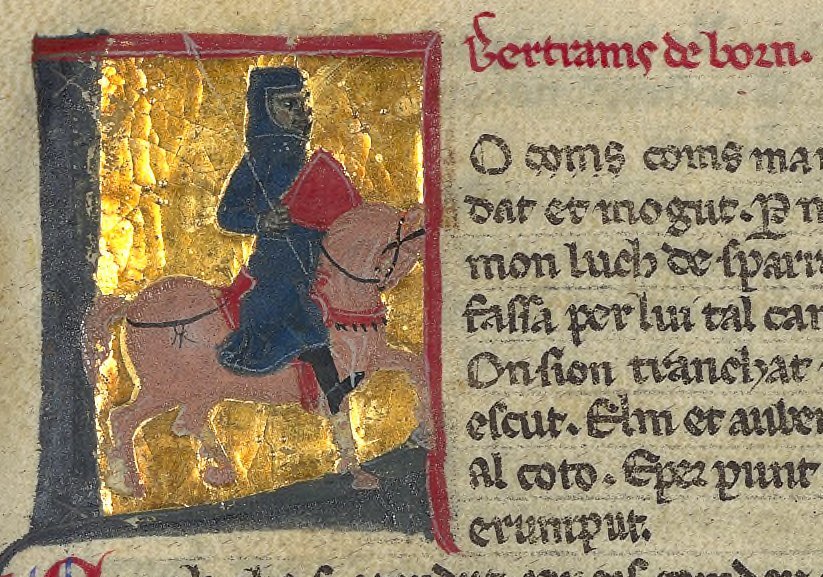 Bertrams de born.
O coms coms man
dat et mogut. Per n
mon luch de sparr
fassa per lui tal can
On sion tranchat
escut. Elm et auber
Al coto. Eper punt
erumput.